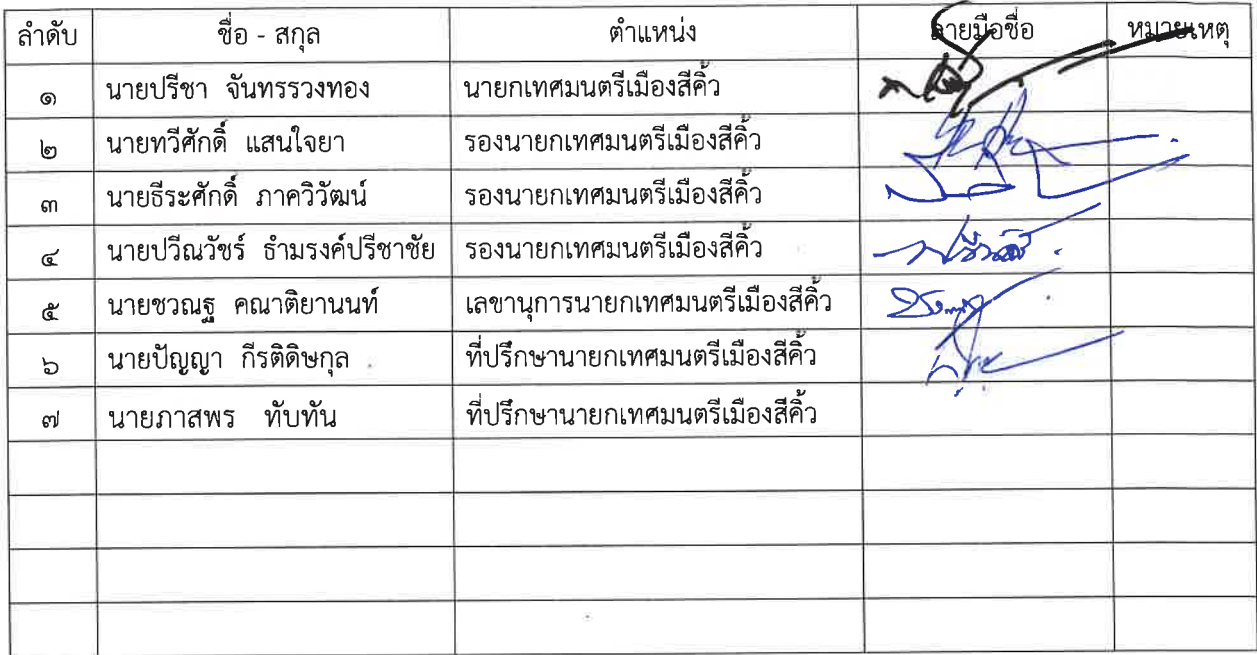 ลำดับ ชื่อ - สกุล ตำแหน่ง ลายมือชื่อ หมายเหตุ
๑ นายปรีชา จันทรรวงทอง นายกเทศมนตรีเมืองสีคิ้ว
๒ นายทวีศักดิ์ แสนใจยา รองนายกเทศมนตรีเมืองสีคิ้ว
๓ นายธีระศักดิ์ ภาควิวัฒน์ รองนายกเทศมนตรีเมืองสีคิ้ว
๔ นายปวีณวัชร์ ธำมรงค์ปรีชาชัย รองนายกเทศมนตรีเมืองสีคิ้ว
๕ นายชวณฐ คณาติยานนท์ เลขานุการนายกเทศมนตรีเมืองสีคิ้ว
๖ นายปัญญา กีรติดิษกุล ที่ปรึกษานายกเทศมนตรีเมืองสีคิ้ว
๗ นายภาสพร ทับทัน ที่ปรึกษานายกเทศมนตรีเมืองสีคิ้ว